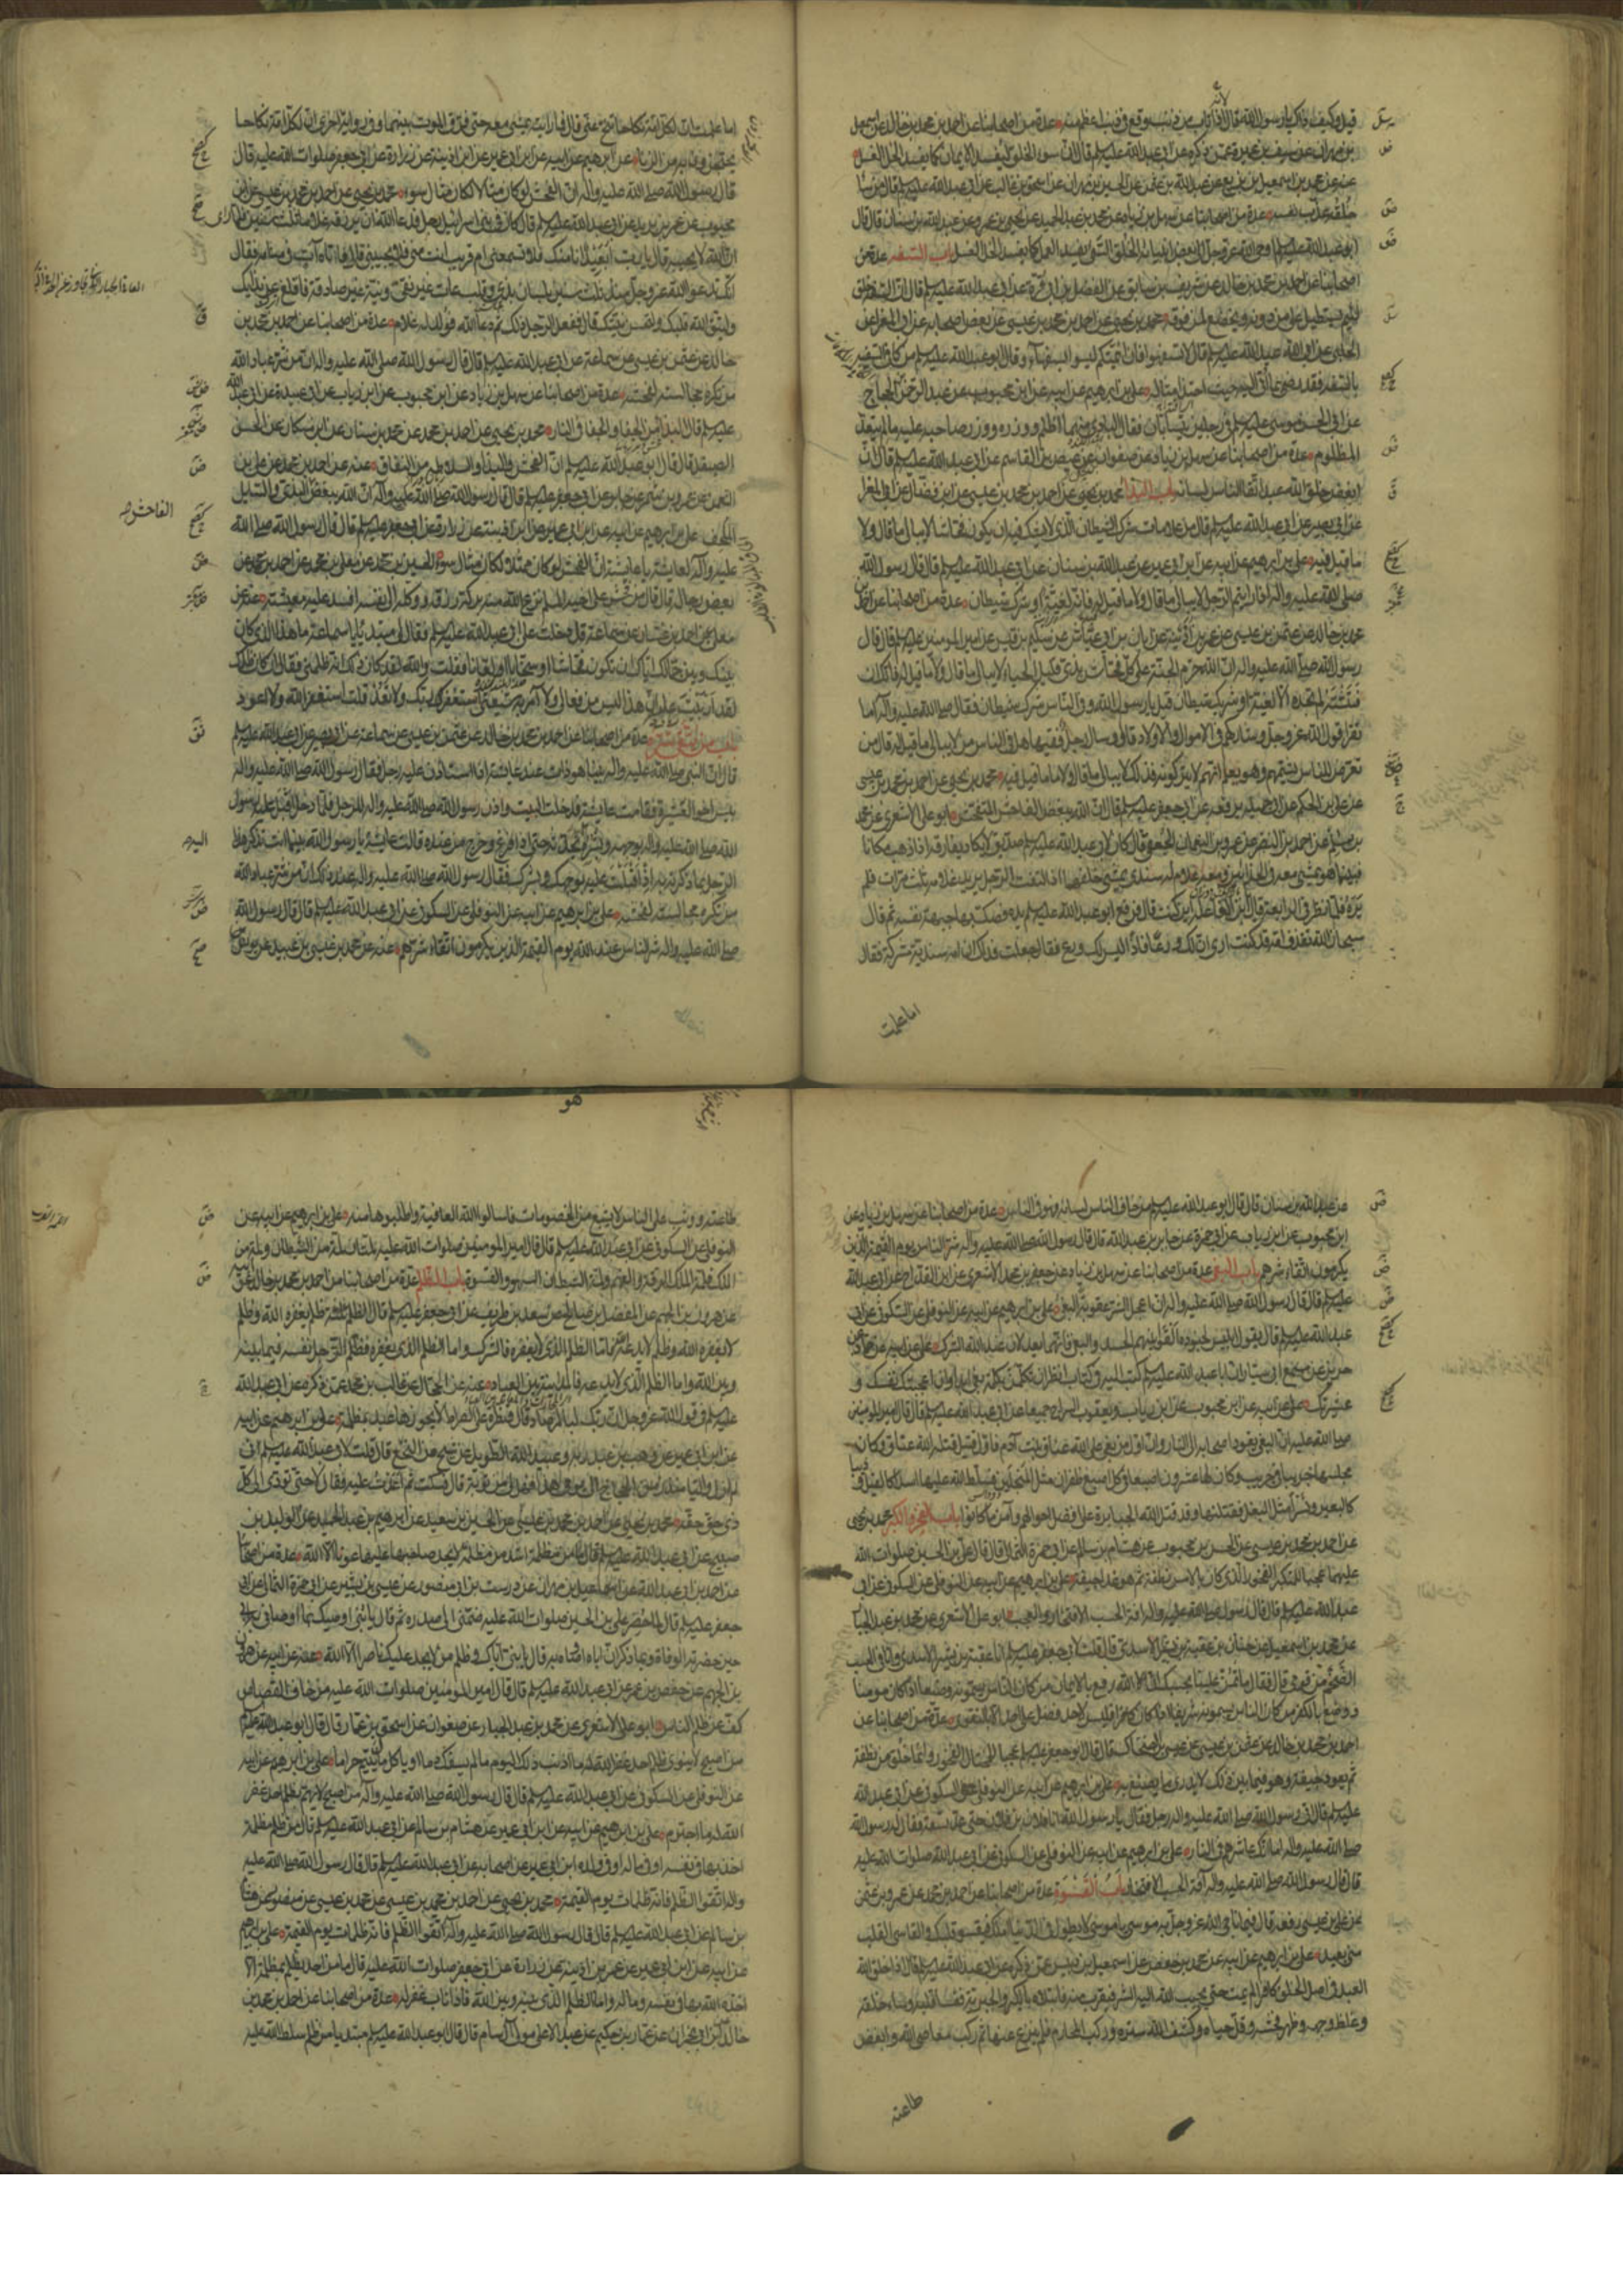 قيل وكيف ذاك يا رسول الله قال لانه اذا تاب من ذنب وقع في ذنب اعظم منه عدة من اصحابنا عن احمد بن محمد بن خالد عن اسمعيل
بن مهران عن سيف بن عميرة عمن ذكره عن ابي عبد الله عليه السلم قال ان سوء الخلق ليفسد الايمان كما يفسد الخل العسل
عنه عن محمد بن اسمعيل بن بزيع عن عبد الله بن عثمن عن الحسين بن مهران عن اسحق بن غالب عن ابي عبد الله عليه السلم قال من ساء
خلقه عذب نفسه عدة من اصحابنا عن سهل بن زياد عن محمد بن عبد الحميد عن يحيى بن عمرو عن عبد الله بن سنان قال قال
ابو عبد الله عليه السلم اوحى الله عز وجل الى بعض انبيائه الخلق السيئ يفسد العمل كما يفسد الخل العسل باب السفه عدة من
اصحابنا عن احمد بن محمد بن خالد عن شريف بن سابق عن الفضل بن ابي قرة عن ابي عبد الله عليه السلم قال ان السفه خلق
لئيم يستطيل على من دونه ويخضع لمن فوقه محمد بن يحيى عن احمد بن محمد بن عيسى عن بعض اصحابه عن ابي المغرا عن
الحلبي عن ابي عبد الله عليه السلم قال لا تسفهوا فان ائمتكم ليسوا بسفهاء وقال ابو عبد الله عليه السلم من كافى السفيه
بالسفه فقد رضي بما اتى اليه حيث احتذى مثاله علي بن ابراهيم عن ابيه عن ابن محبوب عن عبد الرحمن بن الحجاج
عن ابي الحسن موسى عليه السلم في رجلين يتسابان فقال البادي منهما اظلم ووزره ووزر صاحبه عليه ما لم يتعد
المظلوم عدة من اصحابنا عن سهل بن زياد عن صفوان عن عيص بن القاسم عن ابي عبد الله عليه السلم قال ان
ابغض خلق الله عبد اتقى الناس لسانه باب البذاء محمد بن يحيى عن احمد بن محمد بن عيسى عن ابن فضال عن ابي المغرا
عن ابي بصير عن ابي عبد الله عليه السلم قال من علامات شرك الشيطان الذي لا يشك فيه ان يكون فحاشا لا يبالي ما قال ولا
ما قيل فيه علي بن ابراهيم عن ابيه عن ابن ابي عمير عن عبد الله بن سنان عن ابي عبد الله عليه السلم قال قال رسول الله
صلى الله عليه واله اذا رايتم الرجل لا يبالي ما قال ولا ما قيل له فانه لغية او شرك شيطان عدة من اصحابنا عن احمد بن
محمد بن خالد عن عثمن بن عيسى عن عمر بن اذينة عن ابان بن ابي عياش عن سليم بن قيس عن امير المومنين عليه السلم قال قال
رسول الله صلى الله عليه واله ان الله حرم الجنة على كل فحاش بذي قليل الحياء لا يبالي ما قال ولا ما قيل له فانك ان
فتشته لم تجده الا لغية او شرك شيطان قيل يا رسول الله وفي الناس شرك شيطان فقال صلى الله عليه واله اما
تقرا قول الله عز وجل وشاركهم في الاموال والاولاد قال وسال رجل فقيها هل في الناس من لا يبالي ما قيل له قال من
تعرض للناس يشتمهم وهو يعلم انهم لا يتركونه فذلك لا يبالي ما قال ولا ما قيل فيه محمد بن يحيى عن احمد بن محمد بن عيسى
عن علي بن الحكم عن ابي جميلة يرفعه عن ابي جعفر عليه السلم قال ان الله يبغض الفاحش المتفحش ابو علي الاشعري عن محمد
بن سالم عن احمد بن النضر عن عمرو بن النعمان الجعفي قال كان لابي عبد الله عليه السلم صديق لا يكاد يفارقه اذا ذهب مكانا
فبينما هو يمشي معه في الحذائين ومعه غلام له سندي يمشي خلفهما اذا التفت الرجل يريد غلامه ثلث مرات فلم
يره فلما نظر في الرابعة قال يا بن الفاعلة اين كنت قال فرفع ابو عبد الله عليه السلم يده فصك بها جبهة نفسه ثم قال
سبحان الله تقذف امه قد كنت ارى ان لك ورعا فاذا ليس لك ورع فقال جعلت فداك ان امه سندية مشركة فقال
اما علمت
اما علمت ان لكل امة نكاحا تنح عني قال فما رايته يمشي معه حتى فرق الموت بينهما وفي رواية اخرى ان لكل امة نكاحا
يحتجزون به من الزنا علي بن ابرهيم عن ابيه عن ابن ابي عمير عن ابن اذينة عن زرارة عن ابي جعفر صلوات الله عليه قال
قال رسول الله صلى الله عليه واله ان الفحش لو كان مثالا لكان مثال سوء محمد بن يحيى عن احمد بن محمد بن عيسى عن ابن
محبوب عن عمر بن يزيد عن ابي عبد الله عليه السلم قال كان في بني اسرائيل رجل فدعا الله ان يرزقه غلاما ثلث سنين فلما راى
ان الله لا يجيبه قال يا رب ابعيد انا منك فلا تسمعني ام قريب انت مني فلا تجيبني قال فاتاه آت في منامه فقال
انك تدعو الله عز وجل منذ ثلث سنين بلسان بذي وقلب عات غير تقي ونية غير صادقة فاقلع عن بذائك
وليتق الله قلبك ولتحسن نيتك قال ففعل الرجل ذلك ثم دعا الله فولد له غلام عدة من اصحابنا عن احمد بن محمد بن
خالد عن عثمن بن عيسى عن سماعة عن ابي عبد الله عليه السلم قال قال رسول الله صلى الله عليه واله ان من شر عباد الله
من تكره مجالسته لفحشه عدة من اصحابنا عن سهل بن زياد عن ابن محبوب عن ابن رياب عن ابي عبيدة عن ابي عبد الله
عليه السلم قال البذاء من الجفاء والجفاء في النار محمد بن يحيى عن احمد بن محمد عن محمد بن سنان عن ابن مسكان عن الحسن
الصيقل قال قال ابو عبد الله عليه السلم ان الفحش والبذاء والسلاطة من النفاق عنه عن احمد بن محمد عن علي بن
النعمن عن عمرو بن شمر عن جابر عن ابي جعفر عليه السلم قال قال رسول الله صلى الله عليه واله ان الله يبغض البذي والسائل
الملحف علي بن ابرهيم عن ابيه عن ابن ابي عمير عن ابن اذينة عن زرارة عن ابي جعفر عليه السلم قال قال رسول الله صلى الله
عليه وآله لعايشة يا عايشة ان الفحش لو كان ممثلا لكان مثال سوء الحسين بن محمد عن معلى بن محمد عن احمد بن محمد عن
بعض رجاله قال قال من فحش على اخيه المسلم نزع الله منه بركة رزقه ووكله الى نفسه وافسد عليه معيشته عنه عن
معلى عن احمد بن غسان عن سماعة قال دخلت على ابي عبد الله عليه السلم فقال لي مبتديا يا سماعة ما هذا الذي كان
بينك وبين جمالك اياك ان تكون فحاشا او سخابا او لعانا فقلت والله لقد كان ذلك انه ظلمني فقال ان كان ظلمك
لقد اربيت عليه ان هذا ليس من فعالي ولا آمر به شيعتي استغفر ربك ولا تعد قلت استغفر الله ولا اعود
باب من يتقى شره عدة من اصحابنا عن احمد بن محمد بن خالد عن عثمن بن عيسى عن سماعة عن ابي بصير عن ابي عبد الله عليه السلم
قال ان النبي صلى الله عليه واله بينا هو ذات يوم عند عايشة اذا استاذن عليه رجل فقال رسول الله صلى الله عليه واله
بيس اخو العشيرة فقامت عايشة فدخلت البيت واذن رسول الله صلى الله عليه واله للرجل فلما دخل اقبل عليه رسول
الله صلى الله عليه واله بوجهه وبشره يحدثه حتى اذا فرغ وخرج من عنده قالت عايشة يا رسول الله بينما انت تذكر هذا
الرجل بما ذكرته به اذ اقبلت عليه بوجهك وبشرك فقال رسول الله صلى الله عليه واله عند ذلك ان من شر عباد الله
من تكره مجالسته لفحشه علي بن ابرهيم عن ابيه عن النوفلي عن السكوني عن ابي عبد الله عليه السلم قال قال رسول الله
صلى الله عليه واله شر الناس عند الله يوم القيمة الذين يكرمون اتقاء شرهم عنه عن محمد بن عيسى بن عبيد عن يونس
الفاحش
اليه
عن عبد الله بن سنان قال قال ابو عبد الله عليه السلم من خاف الناس لسانه فهو في النار عدة من اصحابنا عن سهل بن زياد عن
ابن محبوب عن ابن رياب عن ابي حمزة عن جابر بن عبد الله قال قال رسول الله صلى الله عليه وآله شر الناس يوم القيمة الذين
يكرمون اتقاء شرهم باب البغي عدة من اصحابنا عن سهل بن زياد عن جعفر بن محمد الاشعري عن ابن القداح عن ابي عبد الله
عليه السلم قال قال رسول الله صلى الله عليه واله ان اعجل الشر عقوبة البغي علي بن ابرهيم عن ابيه عن النوفلي عن السكوني عن ابي
عبد الله عليه السلم قال يقول ابليس لجنوده القوا بينهم الحسد والبغي فانهما يعدلان عند الله الشرك علي عن ابيه عن حماد عن
حريز عن مسمع ابي سيار ان ابا عبد الله عليه السلم كتب اليه في كتاب انظر ان لا تكلمن بكلمة بغي ابدا وان اعجبتك نفسك و
عشيرتك علي عن ابيه عن ابن محبوب عن ابن رياب ويعقوب السراج جميعا عن ابي عبد الله عليه السلم قال قال امير المومنين
صلى الله عليه ان البغي يقود اصحابه الى النار وان اول من بغى على الله عناق بنت آدم فاول قتيل قتله الله عناق وكان
مجلسها جريبا في جريب وكان لها عشرون اصبعا في كل اصبع ظفران مثل المنجلين فسلط الله عليها اسدا كالفيل وذيبا
كالبعير ونسرا مثل البغل فقتلنها وقد قتل الله الجبابرة على افضل احوالهم وآمن ما كانوا باب الفخر والكبر محمد بن يحيى
عن احمد بن محمد بن عيسى عن الحسن بن محبوب عن هشام بن سالم عن ابي حمزة الثمالي قال قال علي بن الحسين صلوات الله
عليهما عجبا للمتكبر الفخور الذي كان بالامس نطفة ثم هو غدا جيفة علي بن ابرهيم عن ابيه عن النوفلي عن السكوني عن ابي
عبد الله عليه السلم قال قال رسول الله صلى الله عليه واله افة الحسب الافتخار والعجب ابو علي الاشعري عن محمد بن عبد الجبار
عن محمد بن اسمعيل عن حنان بن عقبة بن بشير الاسدي قال قلت لابي جعفر عليه السلم انا عقبة بن بشير الاسدي وانا في الحسب
الضخم من قومي قال فقال ما تمن علينا بحسبك ان الله رفع بالايمان من كان الناس يسمونه وضيعا اذا كان مومنا
ووضع بالكفر من كان الناس يسمونه شريفا اذا كان كافرا فليس لاحد فضل على احد الا بالتقوى عدة من اصحابنا عن
احمد بن محمد بن خالد عن عثمن بن عيسى عن عيسى بن الضحاك قال قال ابو جعفر عليه السلم عجبا للمختال الفخور وانما خلق من نطفة
ثم يعود جيفة وهو فيما بين ذلك لا يدري ما يصنع به علي بن ابرهيم عن ابيه عن النوفلي عن السكوني عن ابي عبد الله
عليه السلم قال اتى رسول الله صلى الله عليه واله رجل فقال يا رسول الله انا فلان بن فلان حتى عد تسعة فقال له رسول الله
صلى الله عليه واله اما انك عاشرهم في النار علي بن ابرهيم عن ابيه عن النوفلي عن السكوني عن ابي عبد الله صلوات الله عليه
قال قال رسول الله صلى الله عليه واله آفة الحسب الافتخار باب القسوة عدة من اصحابنا عن احمد بن محمد عن عمرو بن عثمن
عن علي بن عيسى رفعه قال فيما ناجى الله عز وجل به موسى يا موسى لا يطول في الدنيا املك فيقسو قلبك والقاسي القلب
مني بعيد علي بن ابرهيم عن ابيه عن محمد بن حفص عن اسمعيل بن دبيس عمن ذكره عن ابي عبد الله عليه السلم قال اذا خلق الله
العبد في اصل الخلق كافرا لم يمت حتى يحبب الله اليه الشر فيقرب منه فابتلاه بالكبر والجبرية فقسا قلبه وساء خلقه
وغلظ وجهه وظهر فحشه وقل حياه وكشف الله ستره وركب المحارم فلم ينزع عنها ثم ركب معاصي الله وابغض
طاعته
هو
طاعته ووثب على الناس لا يشبع من الخصومات فاسالوا الله العافية واطلبوها منه علي بن ابرهيم عن ابيه عن
النوفلي عن السكوني عن ابي عبد الله عليه السلم قال قال امير المومنين صلوات الله عليه لمتان لمة من الشيطان ولمة من
الملك فلمة الملك الرقة والفهم ولمة الشيطان السهو والقسوة باب الظلم عدة من اصحابنا عن احمد بن محمد بن خالد عن ابيه
عن هرون بن الجهم عن المفضل بن صالح عن سعد بن طريف عن ابي جعفر عليه السلم قال الظلم ثلثة ظلم يغفره الله وظلم
لا يغفره الله وظلم لا يدعه فاما الظلم الذي لا يغفره فالشرك واما الظلم الذي يغفره فظلم الرجل نفسه فيما بينه
وبين الله واما الظلم الذي لا يدعه فالمداينة بين العباد عنه عن الحجال عن غالب بن محمد عمن ذكره عن ابي عبد الله
عليه السلم في قول الله عز وجل ان ربك لبالمرصاد قال قنطرة على الصراط لا يجوزها عبد بمظلمة علي بن ابرهيم عن ابيه
عن ابن ابي عمير عن وهب بن عبد ربه وعبيد الله الطويل عن شيخ من النخع قال قلت لابي عبد الله عليه السلم اني
لم ازل واليا منذ زمن الحجاج الى يومي هذا فهل لي من توبة قال فسكت ثم اعدت عليه فقال لا حتى تودي الى كل
ذي حق حقه محمد بن يحيى عن احمد بن محمد بن عيسى عن الحسين بن سعيد عن ابرهيم بن عبد الحميد عن الوليد بن
صبيح عن ابي عبد الله عليه السلم قال ما من مظلمة اشد من مظلمة لا يجد صاحبها عليها عونا الا الله عدة من اصحابنا
عن احمد بن ابي عبد الله عن اسمعيل بن مهران عن درست بن ابي منصور عن عيسى بن بشير عن ابي حمزة الثمالي عن ابي
جعفر عليه السلم قال لما حضر علي بن الحسين صلوات الله عليه ضمني الى صدره ثم قال يا بني اوصيك بما اوصاني به ابي
حين حضرته الوفاة وبما ذكر ان اباه اوصاه به قال يا بني اياك وظلم من لا يجد عليك ناصرا الا الله عنه عن ابيه عن هرون
بن الجهم عن حفص بن عمر عن ابي عبد الله عليه السلم قال قال امير المومنين صلوات الله عليه من خاف القصاص
كف عن ظلم الناس ابو علي الاشعري عن محمد بن عبد الجبار عن صفوان عن اسحق بن عمار قال قال ابو عبد الله عليه السلم
من اصبح لا ينوي ظلم احد غفر الله له ما اذنب ذلك اليوم ما لم يسفك دما او ياكل مال يتيم حراما علي بن ابرهيم عن ابيه
عن النوفلي عن السكوني عن ابي عبد الله عليه السلم قال قال رسول الله صلى الله عليه وآله من اصبح لا يهم بظلم احد غفر
الله له ما اجترم علي بن ابرهيم عن ابيه عن ابن ابي عمير عن هشام بن سالم عن ابي عبد الله عليه السلم قال من ظلم مظلمة
اخذ بها في نفسه او في ماله او في ولده ابن ابي عمير عن اصحابه عن ابي عبد الله عليه السلم قال قال رسول الله صلى الله عليه
واله اتقوا الظلم فانه ظلمات يوم القيمة محمد بن يحيى عن احمد بن محمد بن عيسى عن محمد بن عيسى عن منصور عن هشام
بن سالم عن ابي عبد الله عليه السلم قال قال رسول الله صلى الله عليه وآله اتقوا الظلم فانه ظلمات يوم القيمة علي بن ابرهيم
عن ابيه عن ابن ابي عمير عن عمر بن اذينة عن زرارة عن ابي جعفر صلوات الله عليه قال ما من احد يظلم بمظلمة الا
اخذه الله بها في نفسه وماله واما الظلم الذي بينه وبين الله فاذا تاب غفر له عدة من اصحابنا عن احمد بن محمد بن
خالد عن ابن ابي نجران عن عمار بن حكيم عن عبد الاعلى مولى آل سام قال قال ابو عبد الله عليه السلم مبتديا من ظلم سلط الله عليه